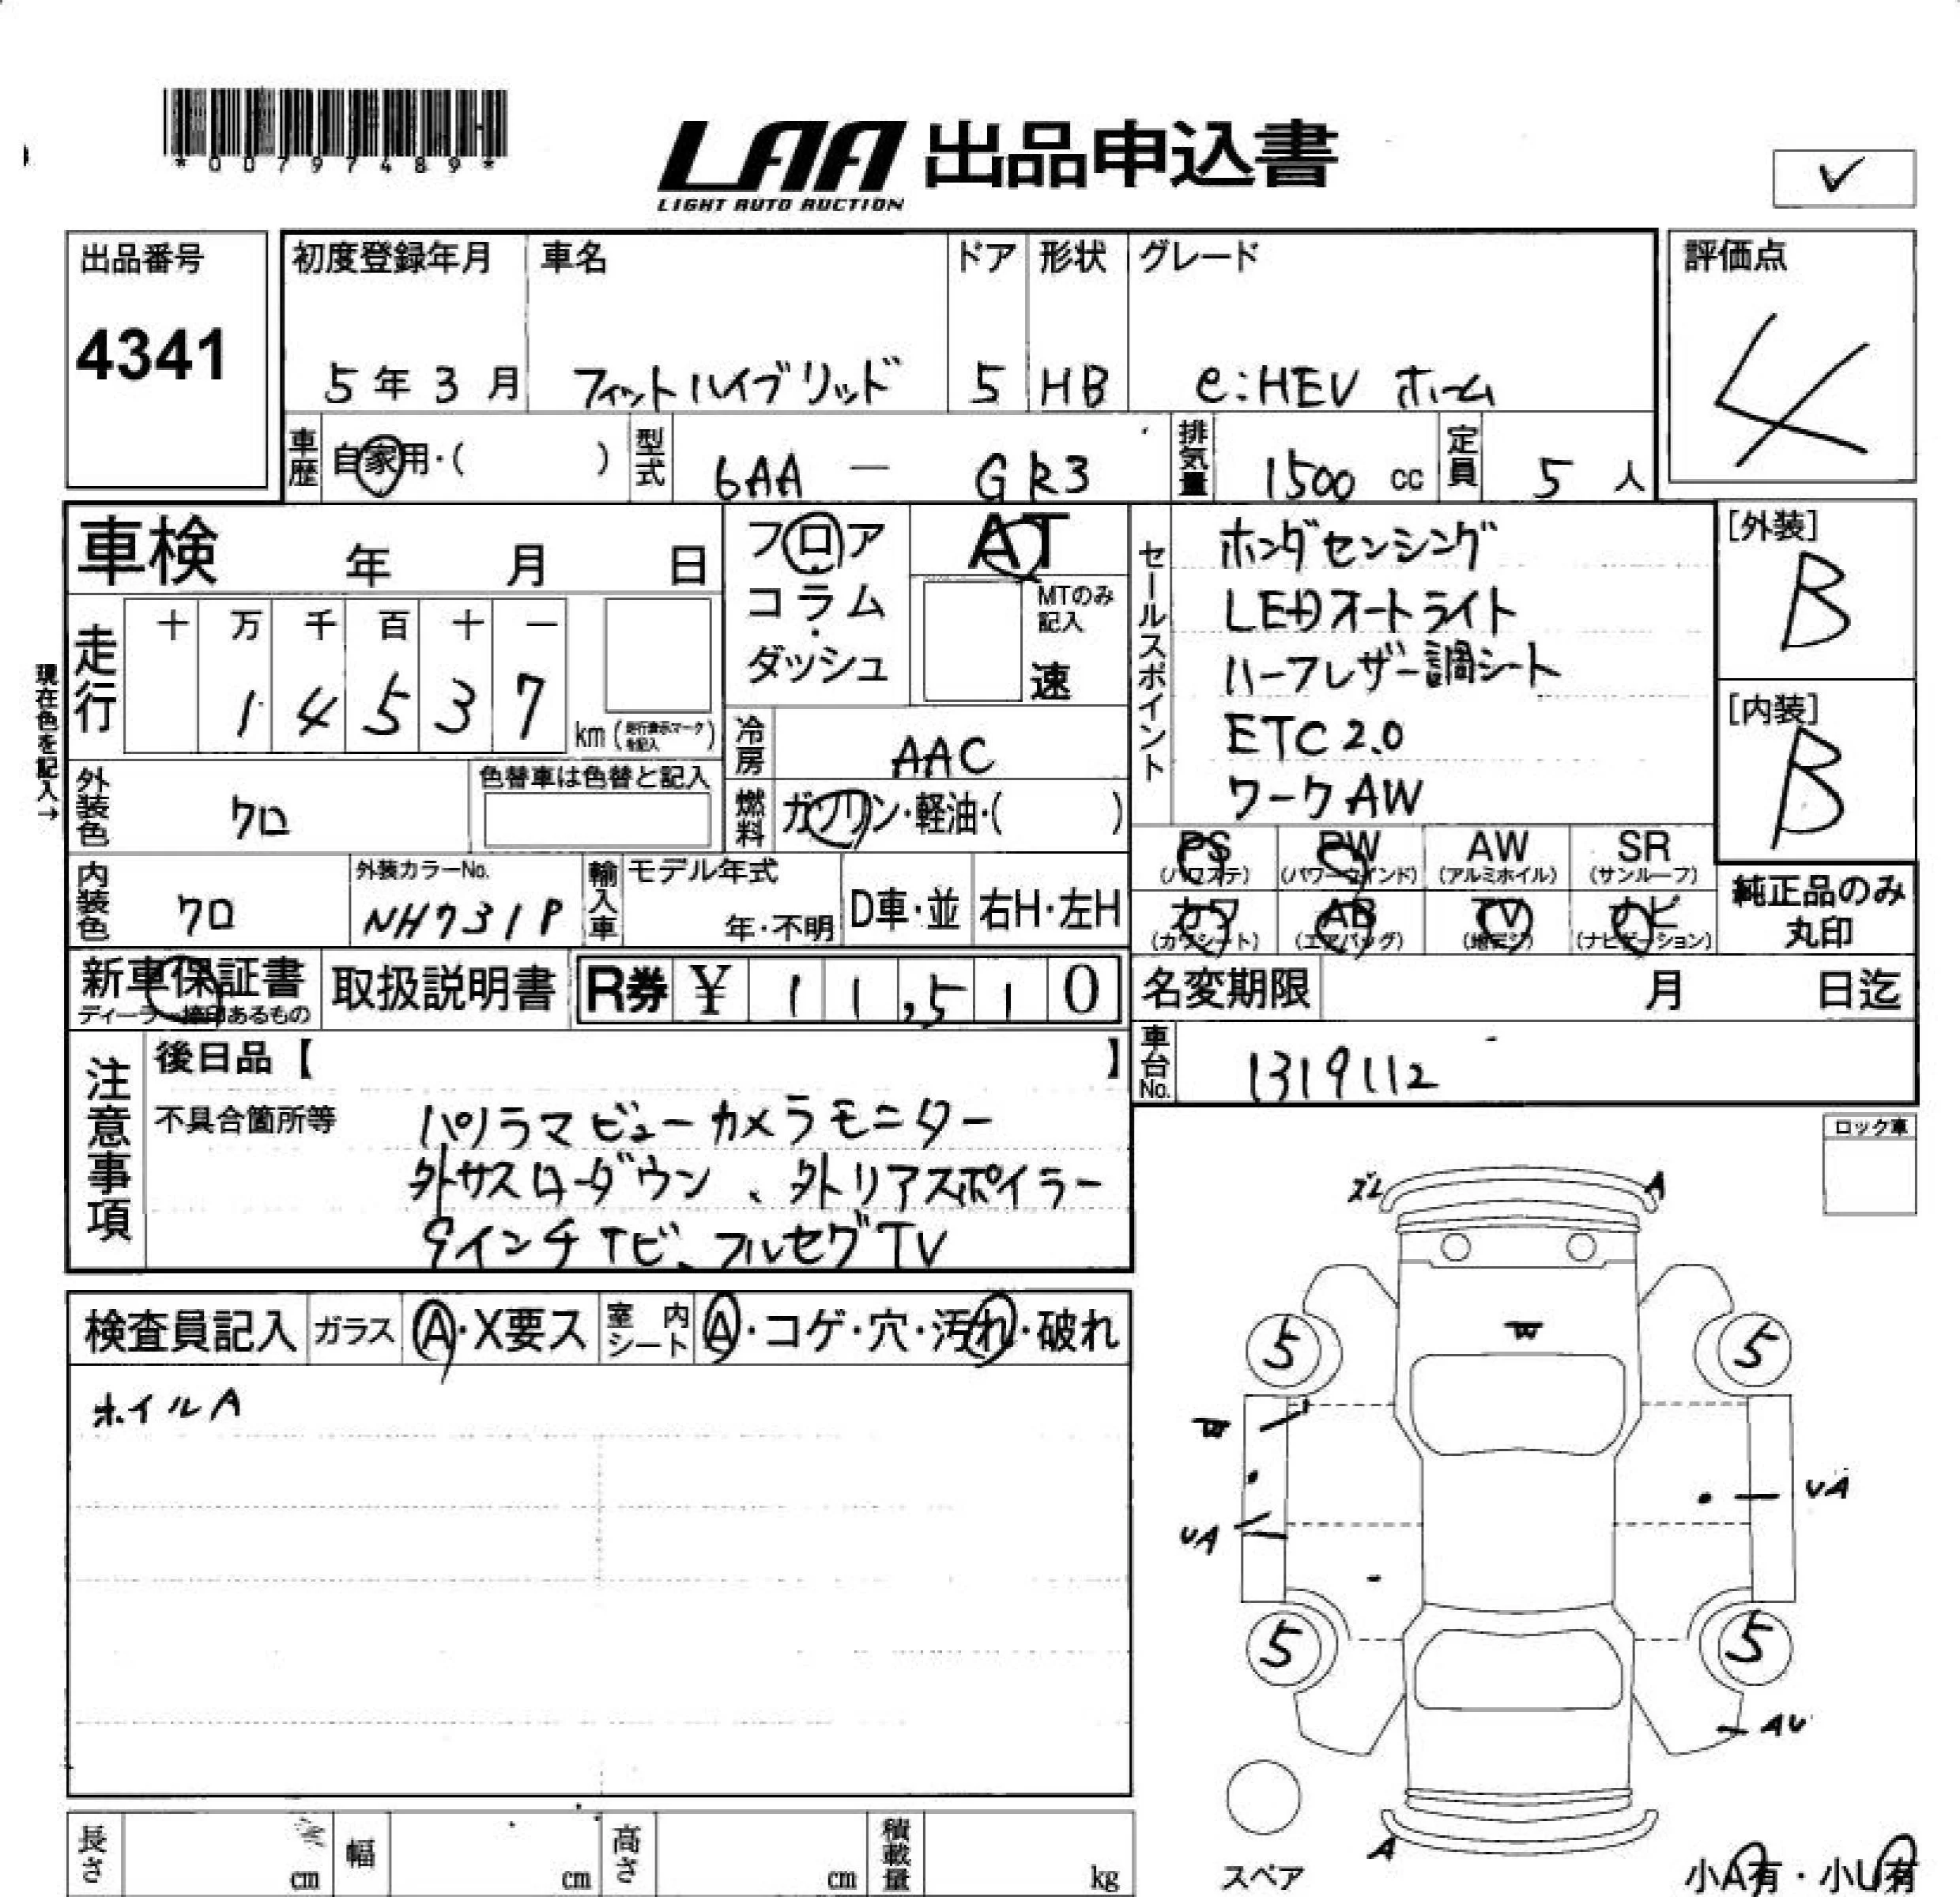 *00797489*
LAA 出品申込書
LIGHT AUTO AUCTION
出品番号 4341
初度登録年月 5年3月
車名 フィットハイブリッド
ドア 5
形状 HB
グレード e:HEV ホーム
評価点 4
車歴 自家用・( )
型式 6AA - GR3
排気量 1500 cc
定員 5 人
車検 年 月 日
フロア コラム・ダッシュ
AT
MTのみ記入
速
セールスポイント
ホンダセンシング
LEDオートライト
ハーフレザー調シート
ETC 2.0
ワークAW
[外装] B
[内装] B
現在色を記入→
走行 十 万 千 百 十 一
1 4 5 3 7
km (走行表示マークを記入)
冷房 AAC
燃料 ガソリン・軽油・( )
外装色 クロ
色替車は色替と記入
内装色 クロ
外装カラーNo. NH731P
輸入車 モデル年式 年・不明
D車・並 右H・左H
PS (パワステ) PW (パワーウインド) AW (アルミホイル) SR (サンルーフ)
カワ (カワシート) AB (エアバッグ) TV (地デジ) ナビ (ナビゲーション)
純正品のみ丸印
新車保証書 ディーラー捺印あるもの
取扱説明書
R券 ¥ 11,510
名変期限 月 日迄
車台No. 1319112
注意事項
後日品【 】
不具合箇所等
パノラマビューカメラモニター
外サスローダウン、外リアスポイラー
9インチナビ、フルセグTV
ロック車
検査員記入 ガラス A・X要ス 室内シート A・コゲ・穴・汚れ・破れ
ホイルA
ズレ A
W
5 5
W
UA
UA
5 5
AU
A
スペア
小A有・小U有
長さ cm 幅 cm 高さ cm 積載量 kg